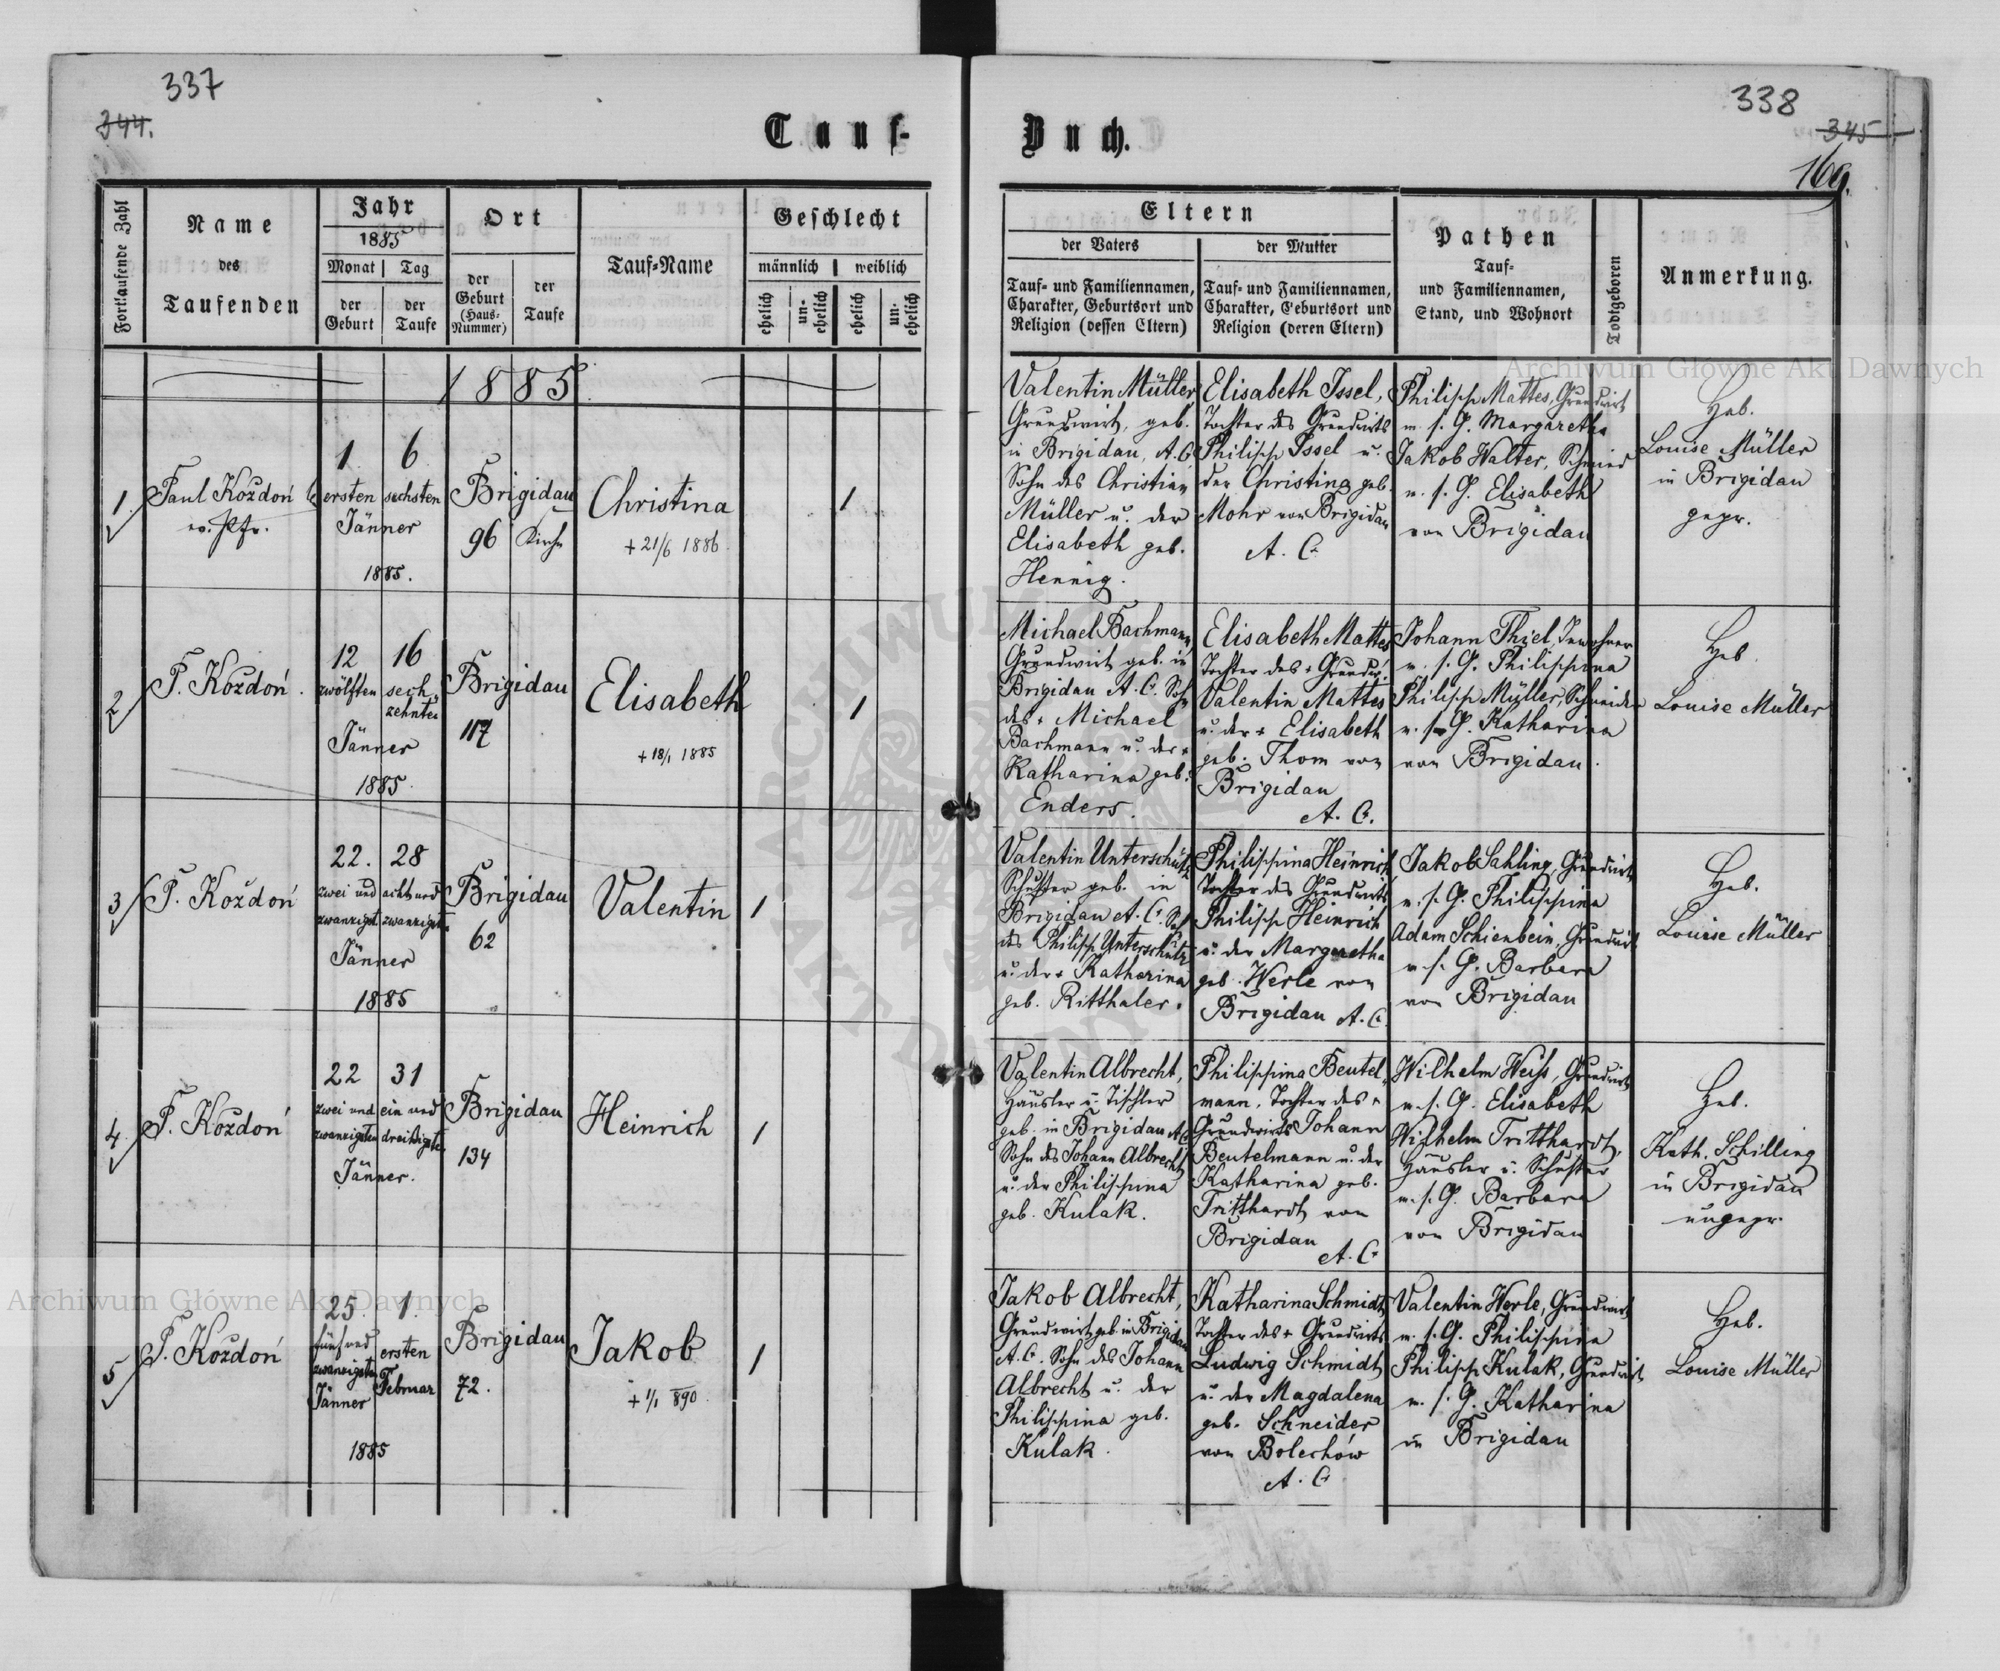 337
344.
Tauf-
Fortlaufende Zahl
Name
des
Taufenden
Jahr
1885
Monat
der
Geburt
Tag
der
Taufe
Ort
der
Geburt
(Haus-
Nummer)
der
Taufe
Tauf=Name
Geschlecht
männlich
weiblich
ehelich
un-
ehelich
ehelich
un-
ehelich
1885
1.
Paul Kozdoń
ev. Pfr.
1. 6.
ersten sechsten
Jänner
1885.
Brigidau
96 Kirche
Christina
+ 21/6 1886.
1
2
P. Kozdoń.
12 16
zwölften sech-
zehnten
Jänner
1885.
Brigidau
117
Elisabeth
+ 18/1 1885
1
3
P. Kozdoń
22. 28
zwei und acht und
zwanzigst. zwanzigst.
Jänner
1885
Brigidau
62
Valentin
1
4.
P. Kozdoń
22 31
zwei und ein und
zwanzigsten dreißigste
Jänner.
Brigidau
134
Heinrich
1
5
P. Kozdoń
25. 1.
fünf und ersten
zwanzigsten Februar
Jänner
1885
Brigidau
72.
Jakob
+ 1/1 890.
1
338
345
169.
Buch.
Eltern
der Vaters
Tauf- und Familiennamen,
Charakter, Geburtsort und
Religion (dessen Eltern)
der Mutter
Tauf- und Familiennamen,
Charakter, Geburtsort und
Religion (deren Eltern)
Pathen
Tauf-
und Familiennamen,
Stand, und Wohnort
Todtgeboren
Anmerkung.
Valentin Müller
Grundwirt, geb.
in Brigidau, A.C.
Sohn des Christian
Müller u. der
Elisabeth geb.
Hennig.
Elisabeth Issel,
Tochter des Grundwirts
Philipp Issel u.
der Christina geb.
Mohr von Brigidau
A. C.
Philipp Mattes, Grundwirt
m. s. G. Margaretha
Jakob Walter, Schmied
m. s. G. Elisabeth
von Brigidau
Heb.
Louise Müller
in Brigidau
gepr.
Michael Bachmann
Grundwirt geb. in
Brigidau A. C. Sohn
des + Michael
Bachmann u. der +
Katharina geb.
Enders.
Elisabeth Mattes
Tochter des + Grundw.
Valentin Mattes
u. der + Elisabeth
geb. Thom von
Brigidau
A. C.
Johann Thiel, Inwohner
m. s. G. Philippina
Philipp Müller, Schneider
m. s. G. Katharina
von Brigidau.
Heb.
Louise Müller
Valentin Unterschütz
Schuster geb. in
Brigidau A. C. Sohn
des Philipp Unterschütz
u. der + Katharina
geb. Ritthaler.
Philippina Heinrich
Tochter des Grundwirts
Philipp Heinrich
u. der Margaretha
geb. Werle von
Brigidau A. C.
Jakob Sahling, Grundwirt
m. s. G. Philippina
Adam Schienbein, Grundwirt
m. s. G. Barbara
von Brigidau
Heb.
Louise Müller
Valentin Albrecht,
Häusler u. Tischler
geb. in Brigidau A.C.
Sohn des Johann Albrecht
u. der Philippina
geb. Kulak.
Philippina Beutel-
mann, Tochter des +
Grundwirts Johann
Beutelmann u. der
Katharina geb.
Tritthardt von
Brigidau
A. C.
Wilhelm Weiß, Grundwirt
m. s. G. Elisabeth
Wilhelm Tritthardt,
Häusler u. Schuster
m. s. G. Barbara
von Brigidau
Heb.
Kath. Schilling
in Brigidau
ungepr.
Jakob Albrecht,
Grundwirt geb. in Brigidau
A. C. Sohn des Johann
Albrecht u. der
Philippina geb.
Kulak.
Katharina Schmidt
Tochter des + Grundwirts
Ludwig Schmidt
u. der Magdalena
geb. Schneider
von Bolechów
A. C.
Valentin Werle, Grundwirt
m. s. G. Philippina
Philipp Kulak, Grundwirt
m. s. G. Katharina
in Brigidau
Heb.
Louise Müller
Archiwum Główne Akt Dawnych
Archiwum Główne Akt Dawnych
ARCHIWUM
AKT DAWNYCH